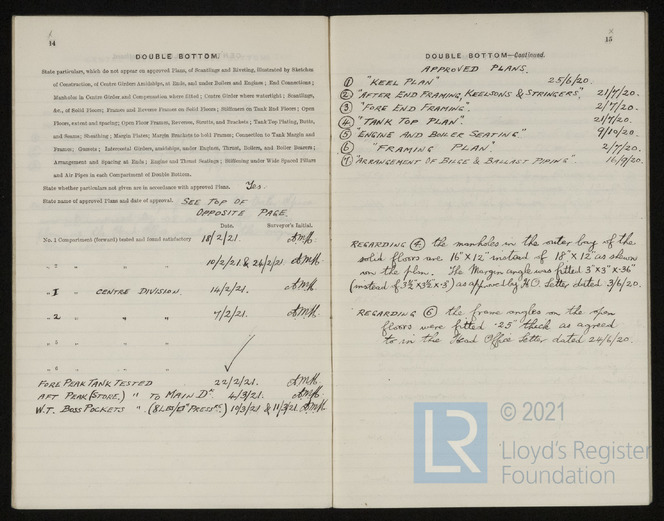 14
DOUBLE BOTTOM.
State particulars, which do not appear on approved Plans, of Scantlings and Riveting, illustrated by Sketches
of Construction, of Centre Girders Amidships, at Ends, and under Boilers and Engines; End Connections;
Manholes in Centre Girder and Compensation where fitted; Centre Girder where watertight; Scantlings,
&c., of Solid Floors; Frames and Reverse Frames on Solid Floors; Stiffeners on Tank End Floors; Open
Floors, extent and spacing; Open Floor Frames, Reverses, Struts, and Brackets; Tank Top Plating, Butts,
and Seams; Sheathing; Margin Plates; Margin Brackets to hold Frames; Connection to Tank Margin and
Frames; Gussets; Intercostal Girders, amidships, under Engines, Thrust, Boilers, and Boiler Bearers;
Arrangement and Spacing at Ends; Engine and Thrust Seatings; Stiffening under Wide Spaced Pillars
and Air Pipes in each Compartment of Double Bottom.
State whether particulars not given are in accordance with approved Plans. Yes.
State name of approved Plans and date of approval. SEE TOP OF
OPPOSITE PAGE.
Date. Surveyor's Initial.
No. 1 Compartment (forward) tested and found satisfactory 18/2/21.
" 2 " " " 10/2/21. & 24/2/21.
" 1 " CENTRE DIVISION. 14/2/21.
" 2 " " " 7/2/21.
" 5 " " "
" 6 " " "
FORE PEAK TANK TESTED 22/2/21.
AFT PEAK (STORE.) " TO MAIN DK. 4/3/21.
W.T. BOSS POCKETS " (8 LBS/□" PRESSRE.) 10/3/21 & 11/3/21.
15
DOUBLE BOTTOM—Continued.
APPROVED PLANS.
① "KEEL PLAN" 25/6/20.
② "AFTER END FRAMING, KEELSONS & STRINGERS." 21/7/20.
③ "FORE END FRAMING." 2/7/20.
④ "TANK TOP PLAN" 21/7/20.
⑤ "ENGINE AND BOILER SEATING." 9/10/20.
⑥ "FRAMING PLAN" 2/7/20.
⑦ "ARRANGEMENT OF BILGE & BALLAST PIPING" 16/9/20.
REGARDING ④ the manholes in the outer bay of the
solid floors are 16" x 12" instead of 18" x 12" as shewn
on the plan. The Margin angle was fitted 3" x 3" x .36"
(instead of 3½" x 3½" x .5) as approved by H.O. Letter dated 3/6/20.
REGARDING ⑥ the frame angles on the open
floors were fitted .25 thick as agreed
to in the Head Office letter dated 24/6/20.
© 2021
LR
Lloyd's Register
Foundation